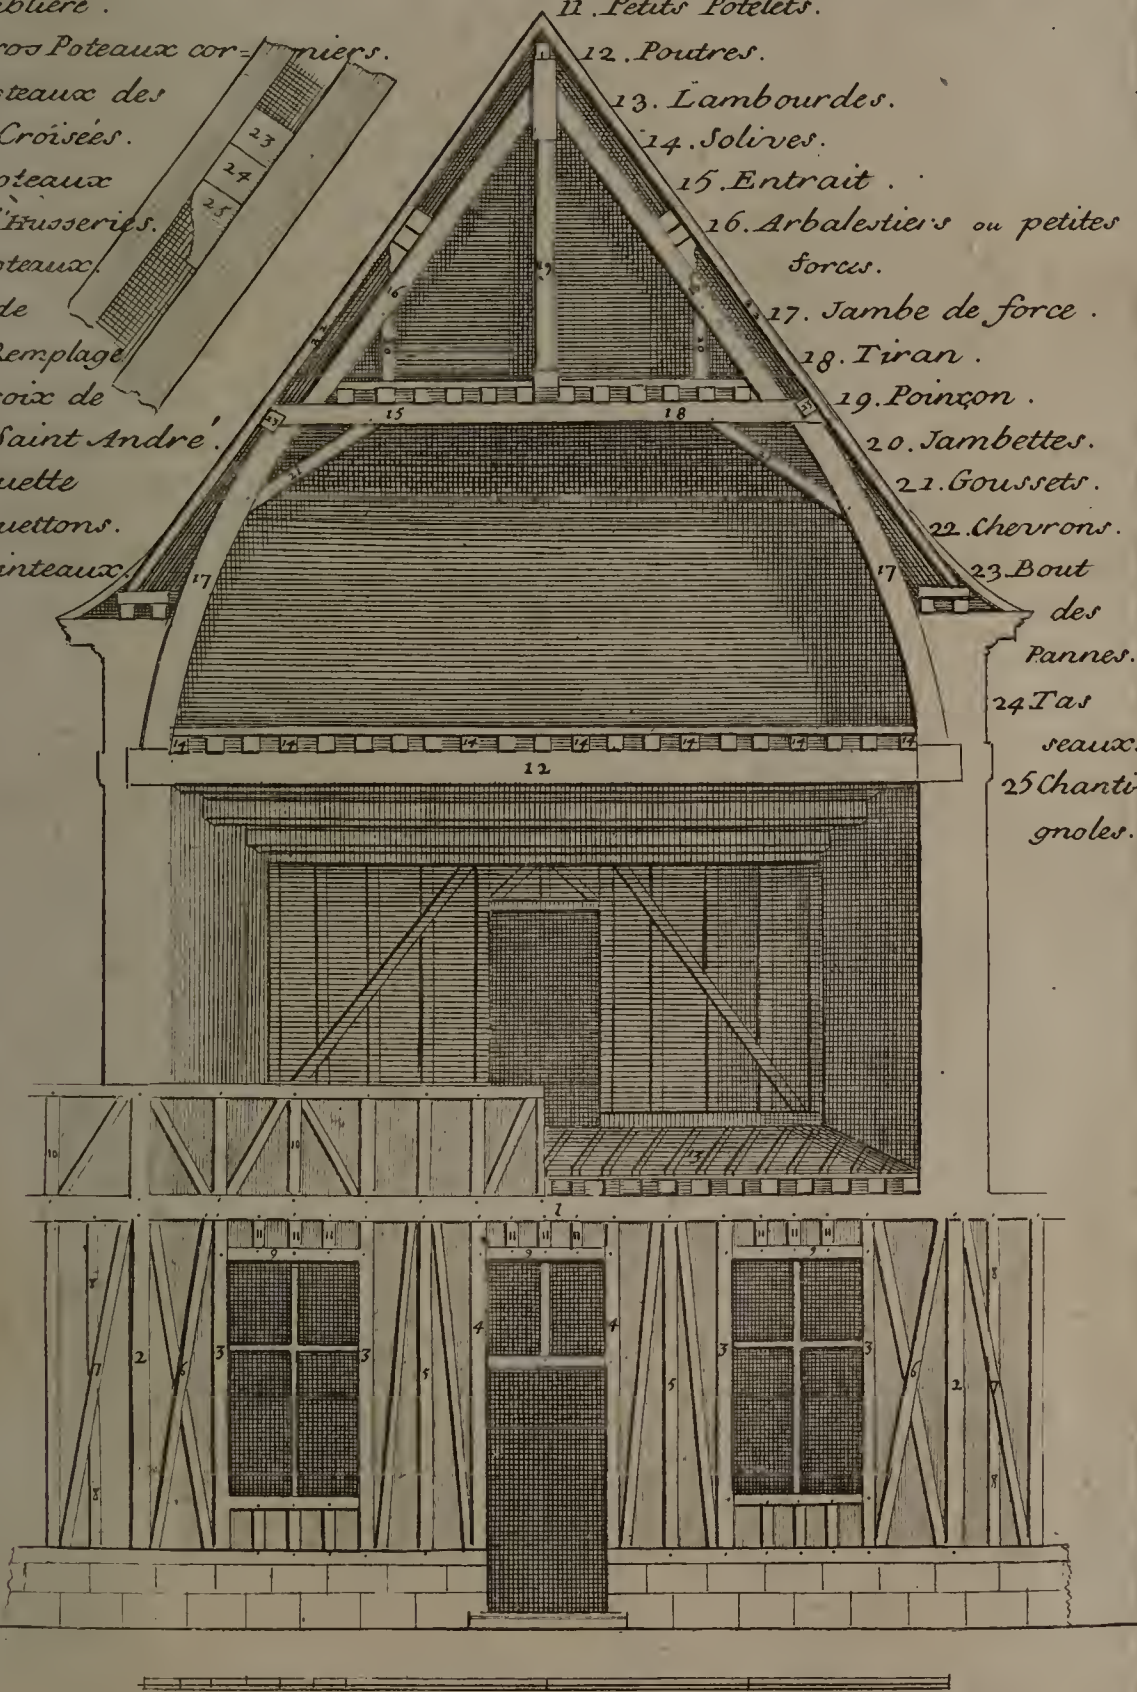 blière .
ros Poteaux cor=niers.
teaux des
Croisées.
oteaux
d'Husseries.
oteaux.
de
Remplage
oix de
Saint André.
uette
uettons.
inteaux.
11. Petits Potelets.
12. Poutres.
13. Lambourdes.
14. Solives.
15. Entrait .
16. Arbalestiers ou petites
forces.
17. Jambe de force .
18. Tiran .
19. Poinçon .
20. Jambettes.
21. Goussets.
22. Chevrons.
23. Bout
des
Pannes.
24 Tas
seaux.
25 Chanti
gnoles.
23
24
25
19
16
15 18
21
17 17
14 14 14 14 14 14 14
12
13
10 10
1
11 11 11 11 11 11 11 11
9 9 9
8 8
7 2 6 3 3 5 4 4 5 3 3 6 2 7
8 8